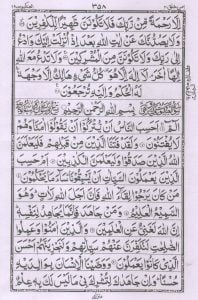 ۳۵۸
اِلَّا رَحْمَةً مِّنْ رَّبِّكَ فَلَا تَكُوْنَنَّ ظَهِيْرًا لِّلْكٰفِرِيْنَ
وَلَا يَصُدُّنَّكَ عَنْ اٰيٰتِ اللّٰهِ بَعْدَ اِذْ اُنْزِلَتْ اِلَيْكَ وَادْعُ
اِلٰى رَبِّكَ وَلَا تَكُوْنَنَّ مِنَ الْمُشْرِكِيْنَ وَلَا تَدْعُ مَعَ اللّٰهِ
اِلٰهًا اٰخَرَ لَآ اِلٰهَ اِلَّا هُوَ كُلُّ شَيْءٍ هَالِكٌ اِلَّا وَجْهَهٗ
لَهُ الْحُكْمُ وَاِلَيْهِ تُرْجَعُوْنَ
بِسْمِ اللّٰهِ الرَّحْمٰنِ الرَّحِيْمِ
الٓمّٓ اَحَسِبَ النَّاسُ اَنْ يُّتْرَكُوْٓا اَنْ يَّقُوْلُوْٓا اٰمَنَّا وَهُمْ
لَا يُفْتَنُوْنَ وَلَقَدْ فَتَنَّا الَّذِيْنَ مِنْ قَبْلِهِمْ فَلَيَعْلَمَنَّ
اللّٰهُ الَّذِيْنَ صَدَقُوْا وَلَيَعْلَمَنَّ الْكٰذِبِيْنَ اَمْ حَسِبَ
الَّذِيْنَ يَعْمَلُوْنَ السَّيِّاٰتِ اَنْ يَّسْبِقُوْنَا سَآءَ مَا يَحْكُمُوْنَ
مَنْ كَانَ يَرْجُوْا لِقَآءَ اللّٰهِ فَاِنَّ اَجَلَ اللّٰهِ لَاٰتٍ وَهُوَ
السَّمِيْعُ الْعَلِيْمُ وَمَنْ جَاهَدَ فَاِنَّمَا يُجَاهِدُ لِنَفْسِهٖ
اِنَّ اللّٰهَ لَغَنِيٌّ عَنِ الْعٰلَمِيْنَ وَالَّذِيْنَ اٰمَنُوْا وَعَمِلُوا
الصّٰلِحٰتِ لَنُكَفِّرَنَّ عَنْهُمْ سَيِّاٰتِهِمْ وَلَنَجْزِيَنَّهُمْ اَحْسَنَ
الَّذِيْ كَانُوْا يَعْمَلُوْنَ وَوَصَّيْنَا الْاِنْسَانَ بِوَالِدَيْهِ
حُسْنًا وَاِنْ جَاهَدٰكَ لِتُشْرِكَ بِيْ مَا لَيْسَ لَكَ بِهٖ عِلْمٌ